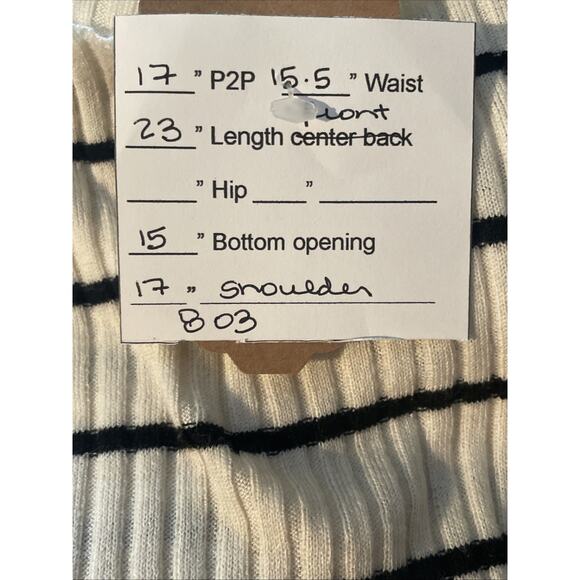 17 " P2P 15.5 " Waist
front
23 " Length center back
" Hip "
15 " Bottom opening
17 " shoulder
B03